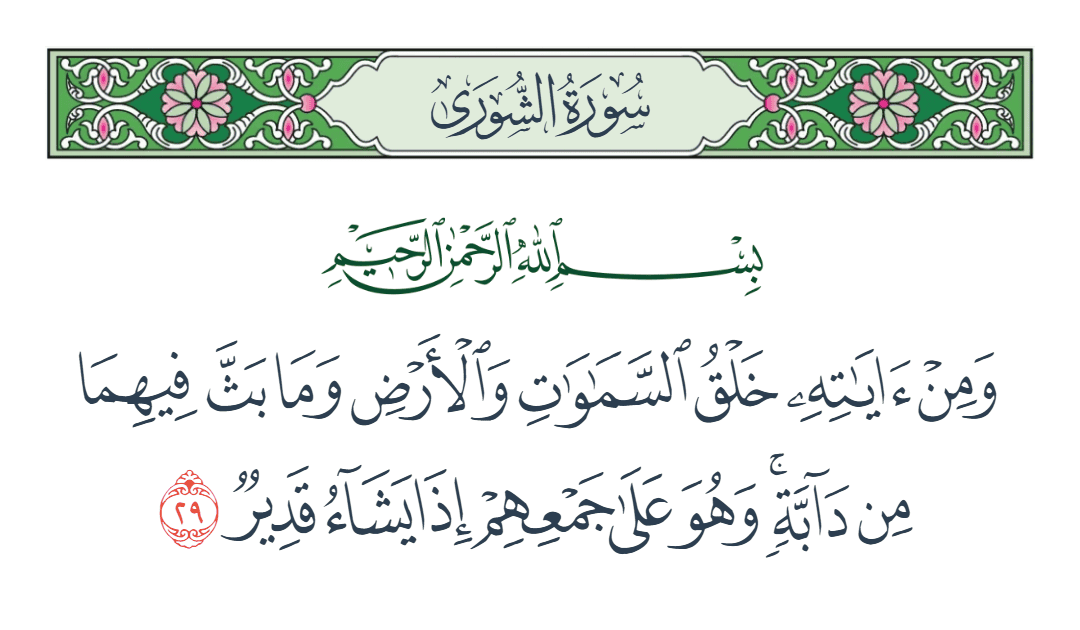 سُورَةُ الشُّورَىٰ
بِسْمِ ٱللَّهِ ٱلرَّحْمَٰنِ ٱلرَّحِيمِ
وَمِنْ ءَايَٰتِهِۦ خَلْقُ ٱلسَّمَٰوَٰتِ وَٱلْأَرْضِ وَمَا بَثَّ فِيهِمَا
مِن دَآبَّةٍۚ وَهُوَ عَلَىٰ جَمْعِهِمْ إِذَا يَشَآءُ قَدِيرٌ ٢٩